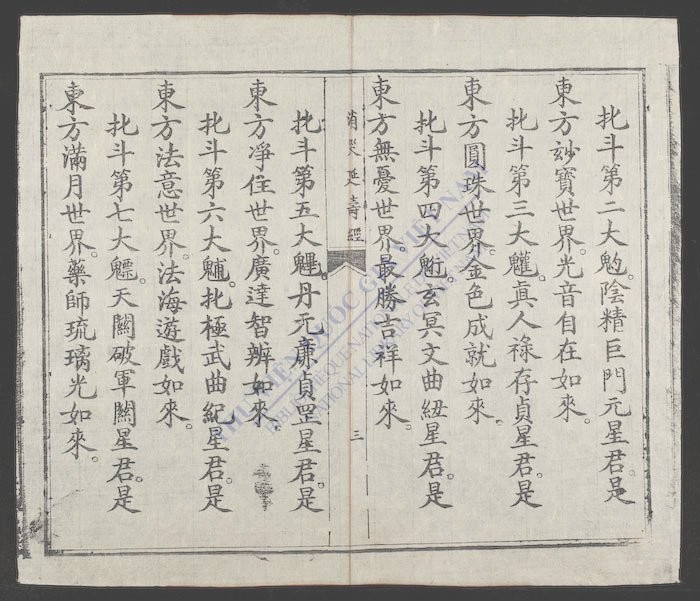 北斗第二大𩲃。陰精巨門元星君。是
東方妙寶世界。光音自在如來。
北斗第三大𩵄。真人祿存貞星君。是
東方圓珠世界。金色成就如來。
北斗第四大𩳐。玄冥文曲紐星君。是
東方無憂世界。最勝吉祥如來。
消災延壽經
三
北斗第五大魓。丹元廉貞罡星君。是
東方淨住世界。廣達智辨如來。
北斗第六大䰢。北極武曲紀星君。是
東方法意世界。法海遊戲如來。
北斗第七大魒。天關破軍關星君。是
東方滿月世界。藥師琉璃光如來。
THƯ VIỆN QUỐC GIA VIỆT NAM